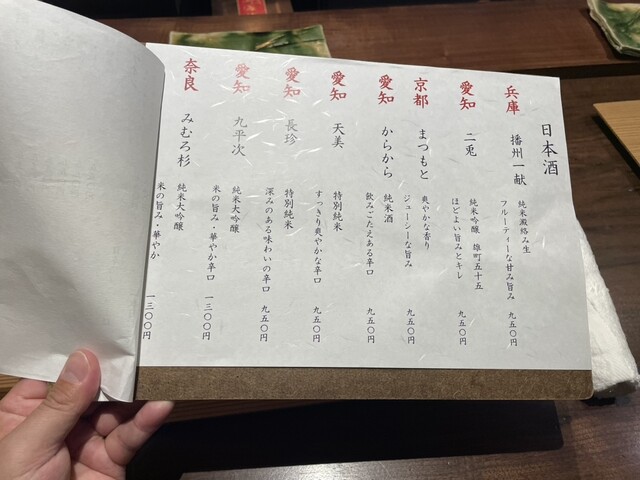 日本酒
兵庫
播州一献
純米澱絡み生
フルーティーな甘み旨み
九五〇円
愛知
二兎
純米吟醸 雄町五十五
ほどよい旨みとキレ
九五〇円
京都
まつもと
爽やかな香り
ジューシーな旨み
九五〇円
愛知
からから
純米酒
飲みごたえある辛口
九五〇円
愛知
天美
特別純米
すっきり爽やかな辛口
九五〇円
愛知
長珍
特別純米
深みのある味わいの辛口
九五〇円
愛知
九平次
純米大吟醸
米の旨み・華やか辛口
一三〇〇円
奈良
みむろ杉
純米大吟醸
米の旨み・華やか
一三〇〇円